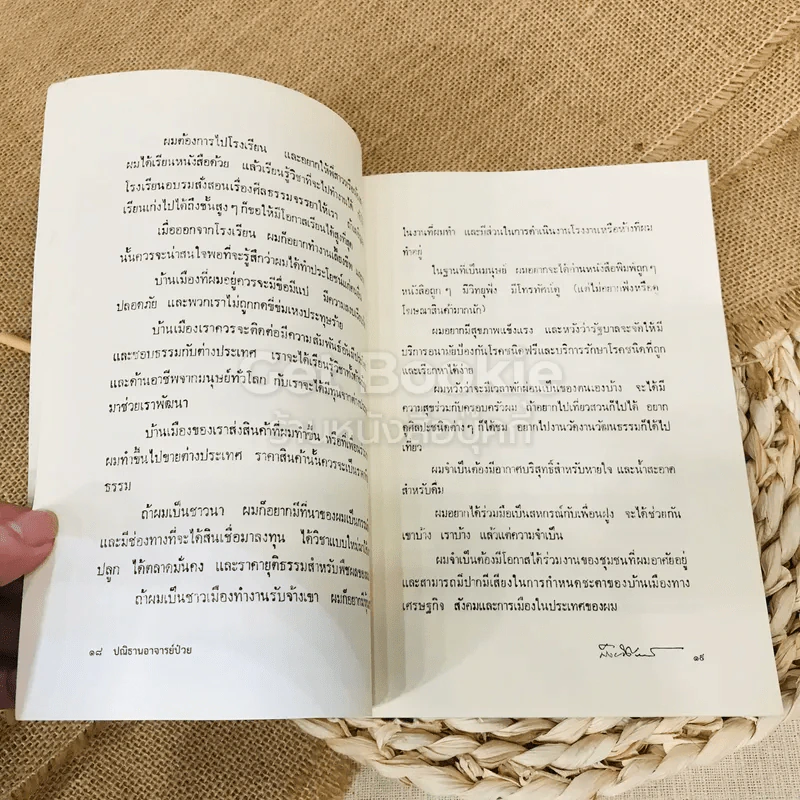 ผมต้องการไปโรงเรียน และอยากให้พี่สาวหรือ
ผมได้เรียนหนังสือด้วย แล้วเรียนรู้วิชาที่จะไปทำงานได้
โรงเรียนอบรมสั่งสอนเรื่องศีลธรรมจรรยาให้เรา ถ้า
เรียนเก่งไปได้ถึงชั้นสูงๆ ก็ขอให้มีโอกาสเรียนได้สูงที่สุด
เมื่อออกจากโรงเรียน ผมก็อยากทำงานเลี้ยงชีพ
นั้นควรจะน่าสนใจพอที่จะรู้สึกว่าผมได้ทำประโยชน์
บ้านเมืองที่ผมอยู่ควรจะมีขื่อมีแป มีความ
ปลอดภัย และพวกเราไม่ถูกกดขี่ข่มเหงประทุษร้าย
บ้านเมืองเราควรจะติดต่อมีความสัมพันธ์อันมี
และชอบธรรมกับต่างประเทศ เราจะได้เรียนรู้วิชา
และด้านอาชีพจากมนุษย์ทั่วโลก กับเราจะได้มีทุนจาก
มาช่วยเราพัฒนา
บ้านเมืองของเราส่งสินค้าที่ผมทำขึ้น หรือที่
ผมทำขึ้นไปขายต่างประเทศ ราคาสินค้านั้นควรจะเป็น
ธรรม
ถ้าผมเป็นชาวนา ผมก็อยากมีที่นาของผมเป็น
และมีช่องทางที่จะได้สินเชื่อมาลงทุน ได้วิชาแบบใหม่
ปลูก ได้ตลาดมั่นคง และราคายุติธรรมสำหรับพืชผลของ
ถ้าผมเป็นชาวเมืองทำงานรับจ้างเขา ผมก็อยากมี
๑๘ ปณิธานอาจารย์ป๋วย
ในงานที่ผมทำ และมีส่วนในการดำเนินงานโรงงานหรือห้างที่ผม
ทำอยู่
ในฐานที่เป็นมนุษย์ ผมอยากจะได้อ่านหนังสือพิมพ์ถูกๆ
หนังสือถูกๆ มีวิทยุฟัง มีโทรทัศน์ดู (แต่ไม่อยากฟังหรือดู
โฆษณาสินค้ามากนัก)
ผมอยากมีสุขภาพแข็งแรง และหวังว่ารัฐบาลจะจัดให้มี
บริการอนามัยป้องกันโรคชนิดฟรีและบริการรักษาโรคชนิดที่ถูก
และเรียกหาได้ง่าย
ผมหวังว่าจะมีเวลาพักผ่อนเป็นของตนเองบ้าง จะได้มี
ความสุขร่วมกับครอบครัวผม ถ้าอยากไปเที่ยวสวนก็ไปได้ อยาก
ดูศิลปะชนิดต่างๆ ก็ได้ชม อยากไปงานวัดงานวัฒนธรรมก็ได้ไป
เที่ยว
ผมจำเป็นต้องมีอากาศบริสุทธิ์สำหรับหายใจ และน้ำสะอาด
สำหรับดื่ม
ผมอยากได้ร่วมมือเป็นสหกรณ์กับเพื่อนฝูง จะได้ช่วยกัน
เขาบ้าง เราบ้าง แล้วแต่ความจำเป็น
ผมจำเป็นต้องมีโอกาสได้ร่วมงานของชุมชนที่ผมอาศัยอยู่
และสามารถมีปากมีเสียงในการกำหนดชะตาของบ้านเมืองทาง
เศรษฐกิจ สังคมและการเมืองในประเทศของผม
๑๙
Get Bookie
ร้านหนังสือบุ๊คกี้